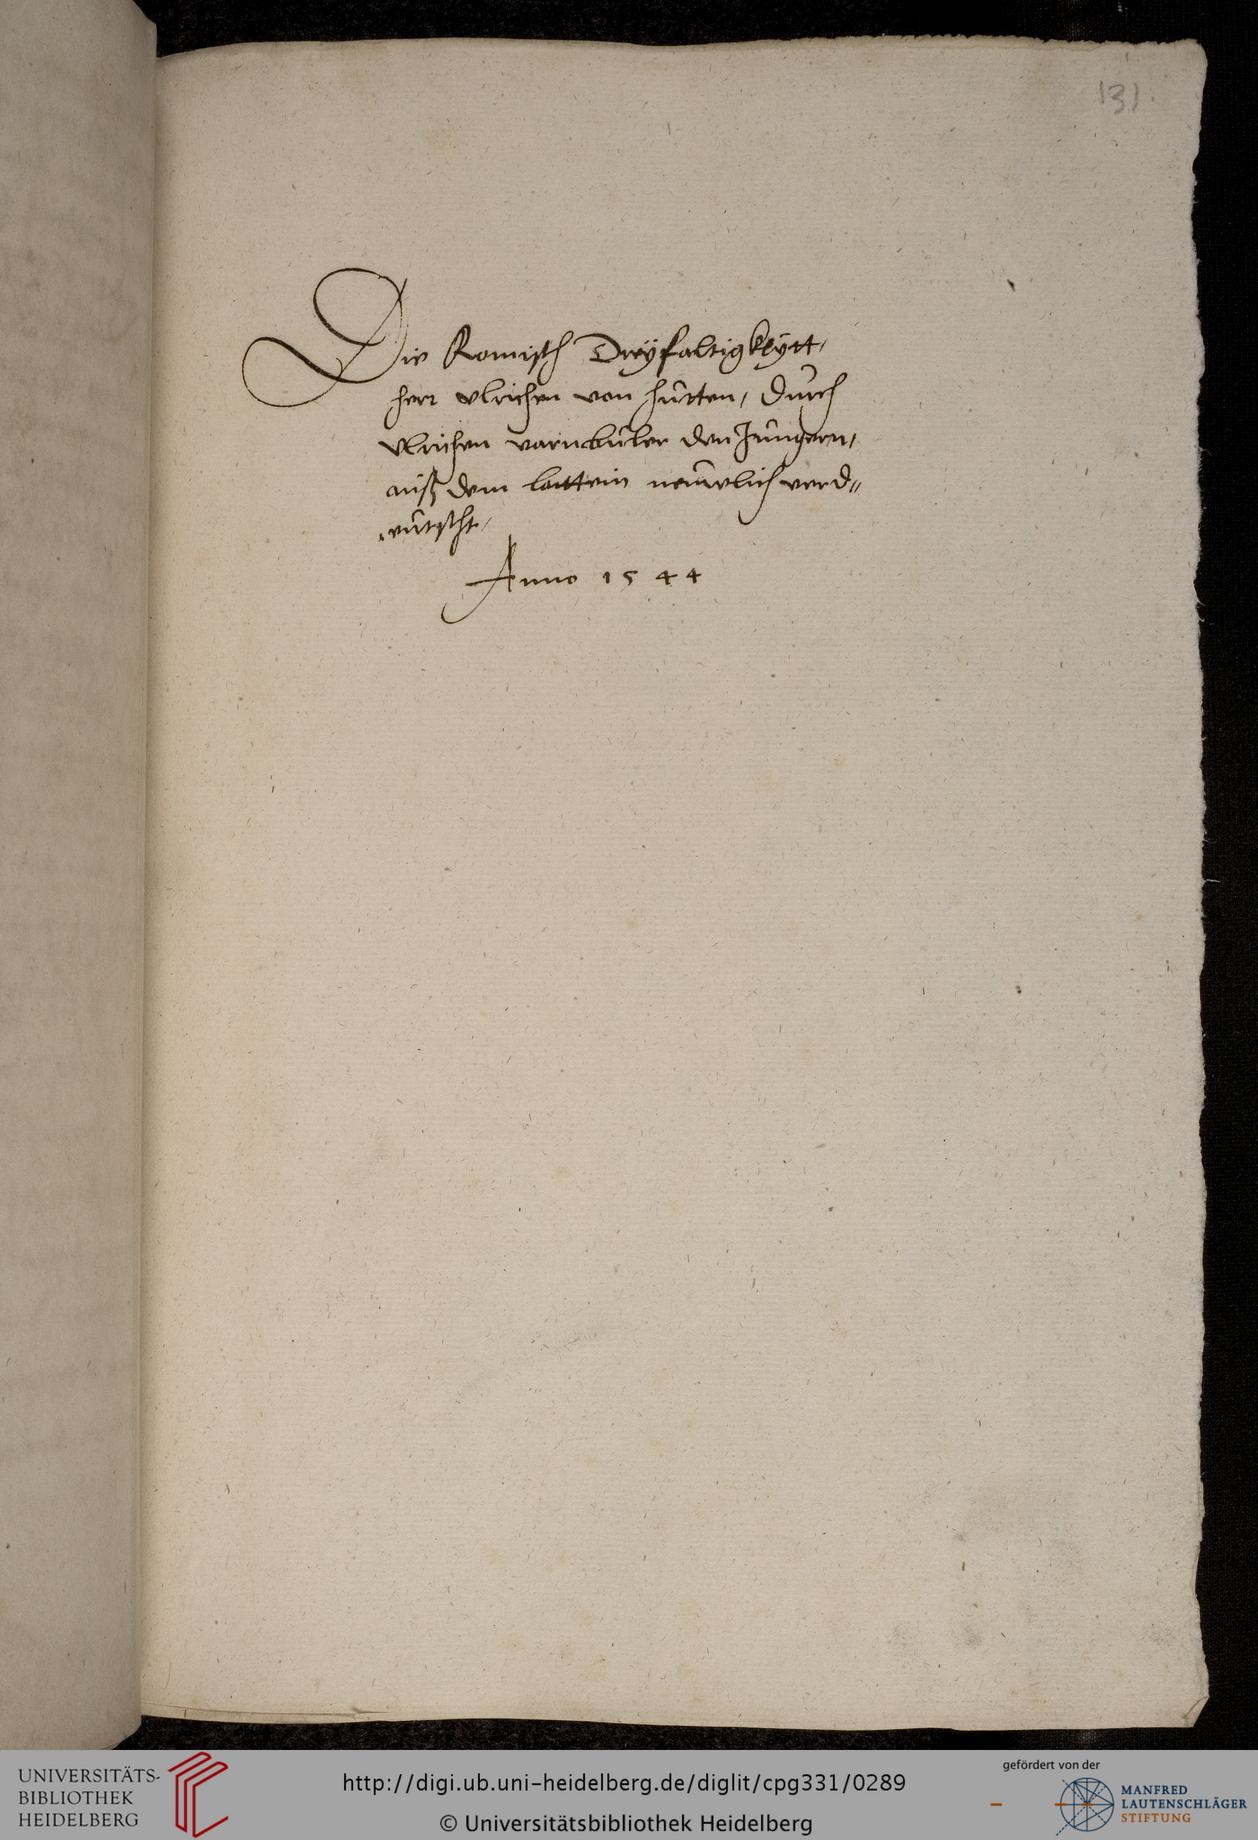 131.
Die Romisch Dreyfaltigkeytt,
herr vlrichen von hutten, durch
vlrichen varnbuler den Jungern,
auß dem lattein neuwlich verd„
„eutscht,
Anno 1544
UNIVERSITÄTS-
BIBLIOTHEK
HEIDELBERG
http://digi.ub.uni-heidelberg.de/diglit/cpg331/0289
© Universitätsbibliothek Heidelberg
gefördert von der
MANFRED
LAUTENSCHLÄGER
STIFTUNG